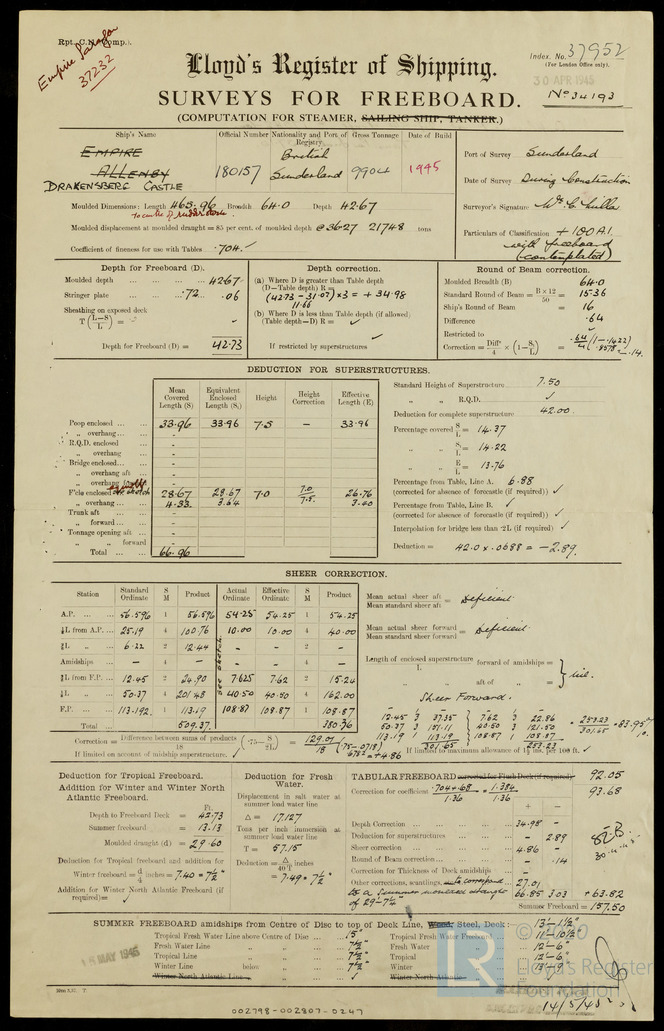 Rpt. C.N. (Comp.).
Empire Paragon
37232
Index. No. 37952
(For London Office only).
30 APR 1945
No 34193
Lloyd's Register of Shipping.
SURVEYS FOR FREEBOARD.
(COMPUTATION FOR STEAMER, SAILING SHIP, TANKER.)
Ship's Name
Official Number
Nationality and Port of Registry
Gross Tonnage
Date of Build
EMPIRE
ALLENBY
DRAKENSBERG CASTLE
180157
British
Sunderland
9904
1945
Port of Survey Sunderland
Date of Survey During Construction
Surveyor's Signature
Particulars of Classification +100A1.
with freeboard
(contemplated)
Moulded Dimensions: Length 463.96 Breadth 64.0 Depth 42.67
to centre of rudder stock
Moulded displacement at moulded draught = 85 per cent. of moulded depth @ 36.27 21748 tons
Coefficient of fineness for use with Tables .704
Depth for Freeboard (D).
Moulded depth ... 42.67
Stringer plate ... .72 ... .06
Sheathing on exposed deck
T (L-S/L) = -
Depth for Freeboard (D) = 42.73
Depth correction.
(a) Where D is greater than Table depth
(D-Table depth) R =
(42.73 - 31.07) × 3 = + 34.98
11.66
(b) Where D is less than Table depth (if allowed)
(Table depth-D) R =
If restricted by superstructures
Round of Beam correction.
Moulded Breadth (B) 64.0
Standard Round of Beam = B × 12/50 = 15.36
Ship's Round of Beam = 16
Difference .64
Restricted to
Correction = Diff/4 × (1-S/L) = .64/4 (1-.1422) .8578 = -.14
DEDUCTION FOR SUPERSTRUCTURES.
Mean Covered Length (S)
Equivalent Enclosed Length (S₁)
Height
Height Correction
Effective Length (E)
Poop enclosed ... 33.96 33.96 7.5 - 33.96
„ overhang ... -
R.Q.D. enclosed -
„ overhang -
Bridge enclosed ... -
„ overhang aft -
„ overhang forward -
F'cle enclosed 28.67 28.67 7.0 7.0/7.5 26.76
„ overhang ... 4.33 3.64 3.40
Trunk aft ... -
„ forward ... -
Tonnage opening aft ... -
„ „ forward -
Total ... 66.96
Standard Height of Superstructure 7.50
„ „ R.Q.D.
Deduction for complete superstructure 42.00
Percentage covered S/L = 14.37
„ „ S₁/L = 14.22
„ „ E/L = 13.76
Percentage from Table, Line A. 6.88
(corrected for absence of forecastle (if required))
Percentage from Table, Line B.
(corrected for absence of forecastle (if required))
Interpolation for bridge less than .2L (if required)
Deduction = 42.0 × .0688 = -2.89.
SHEER CORRECTION.
Station
Standard Ordinate
S M
Product
Actual Ordinate
Effective Ordinate
S M
Product
A.P. ... 56.596 1 56.596 54.25 54.25 1 54.25
⅙L from A.P. ... 25.19 4 100.76 10.00 10.00 4 40.00
⅓L „ ... 6.22 2 12.44 - - 2 -
Amidships ... - 4 - - - 4 -
⅓L from F.P. ... 12.45 2 24.90 7.625 7.62 2 15.24
⅙L „ ... 50.37 4 201.48 40.50 40.50 4 162.00
F.P. ... 113.192 1 113.19 108.87 108.87 1 108.87
Total ... 509.37 380.36
see sketch
Mean actual sheer aft / Mean standard sheer aft = deficient
Mean actual sheer forward / Mean standard sheer forward = deficient
Length of enclosed superstructure forward of amidships = nil.
L
„ „ aft of „ =
Sheer Forward.
12.45 3 37.35 7.62 3 22.86
50.37 3 151.11 40.50 3 121.50
113.19 1 113.19 108.87 1 108.87
301.65 253.23
= 253.23/301.65 = 83.95%
Correction = Difference between sums of products/18 (.75-S/2L) = 129.01/18 (.75-.0718) .6782 = +4.86
If limited on account of midship superstructure.
If limited to maximum allowance of 1½ ins. per 100 ft.
Deduction for Tropical Freeboard.
Addition for Winter and Winter North Atlantic Freeboard.
Ft.
Depth to Freeboard Deck = 42.73
Summer freeboard = 13.13
Moulded draught (d) = 29.60
Deduction for Tropical freeboard and addition for
Winter freeboard = d/4 inches = 7.40 = 7½"
Addition for Winter North Atlantic Freeboard (if required) =
Deduction for Fresh Water.
Displacement in salt water at summer load water line
Δ = 17,127
Tons per inch immersion at summer load water line
T = 57.15
Deduction = Δ/40T inches
= 7.49 = 7½"
TABULAR FREEBOARD corrected for Flush Deck (if required) 92.05
Correction for coefficient .704+.68/1.36 = 1.384/1.36 93.68
+ -
Depth Correction ... 34.98 -
Deduction for superstructures ... - 2.89
Sheer correction ... 4.86 -
Round of Beam correction ... - .14
Correction for Thickness of Deck amidships ... - -
Other corrections, scantlings, to correspond 27.01
to a Summer moulded draught
of 29-7¼" 66.85 3.03 + 63.82
Summer Freeboard = 157.50
SUMMER FREEBOARD amidships from Centre of Disc to top of Deck Line, Wood, Steel, Deck: 13'-1½"
Tropical Fresh Water Line above Centre of Disc ... 15"
Fresh Water Line „ „ ... 7½"
Tropical Line „ „ ... 7½"
Winter Line below „ „ ... 7½"
Winter North Atlantic Line „ „
Tropical Fresh Water Freeboard 11'-10½"
Fresh Water „ 12'-6"
Tropical „ 12'-6"
Winter „ 13'-9"
Winter North Atlantic „
15 MAY 1945
14/5/45
LR
© 2020
Lloyd's Register
Foundation
002798-002807-0247